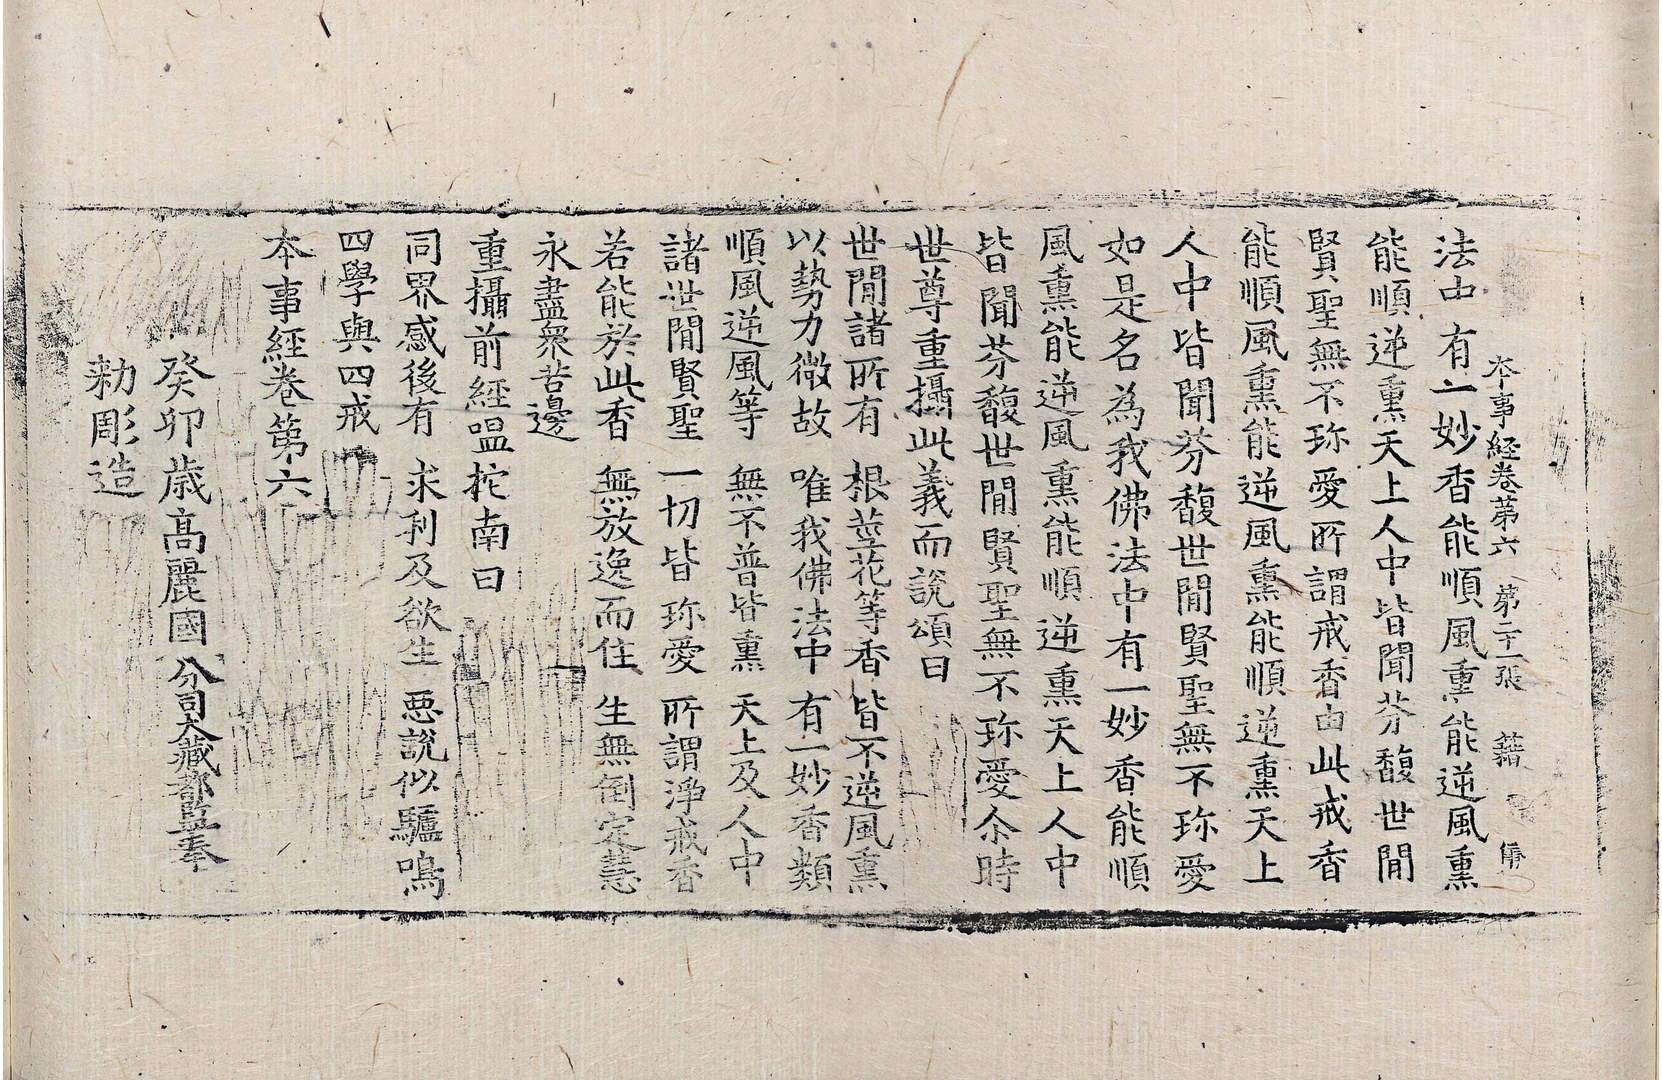 本事經卷第六 第二十一張 籍
法中有一妙香能順風熏能逆風熏
能順逆熏天上人中皆聞芬馥世閒
賢聖無不珎愛所謂戒香由此戒香
能順風熏能逆風熏能順逆熏天上
人中皆聞芬馥世閒賢聖無不珎愛
如是名為我佛法中有一妙香能順
風熏能逆風熏能順逆熏天上人中
皆聞芬馥世閒賢聖無不珎愛尒時
世尊重攝此義而說頌曰
世閒諸所有 根莖花等香 皆不逆風熏
以勢力微故 唯我佛法中 有一妙香類
順風逆風等 無不普皆熏 天上及人中
諸世閒賢聖 一切皆珎愛 所謂淨戒香
若能於此香 無放逸而住 生無倒定慧
永盡衆苦邊
重攝前經嗢拕南曰
同界感後有 求利及欲生 惡說似驢鳴
四學與四戒
本事經卷第六
癸卯歲高麗國分司大藏都監奉
勑彫造